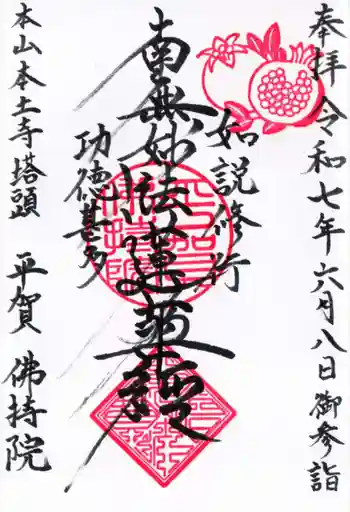 奉拝 令和七年六月八日御参詣
如説修行
南無妙法蓮華経
功徳甚多
本山本土寺塔頭 平賀 佛持院